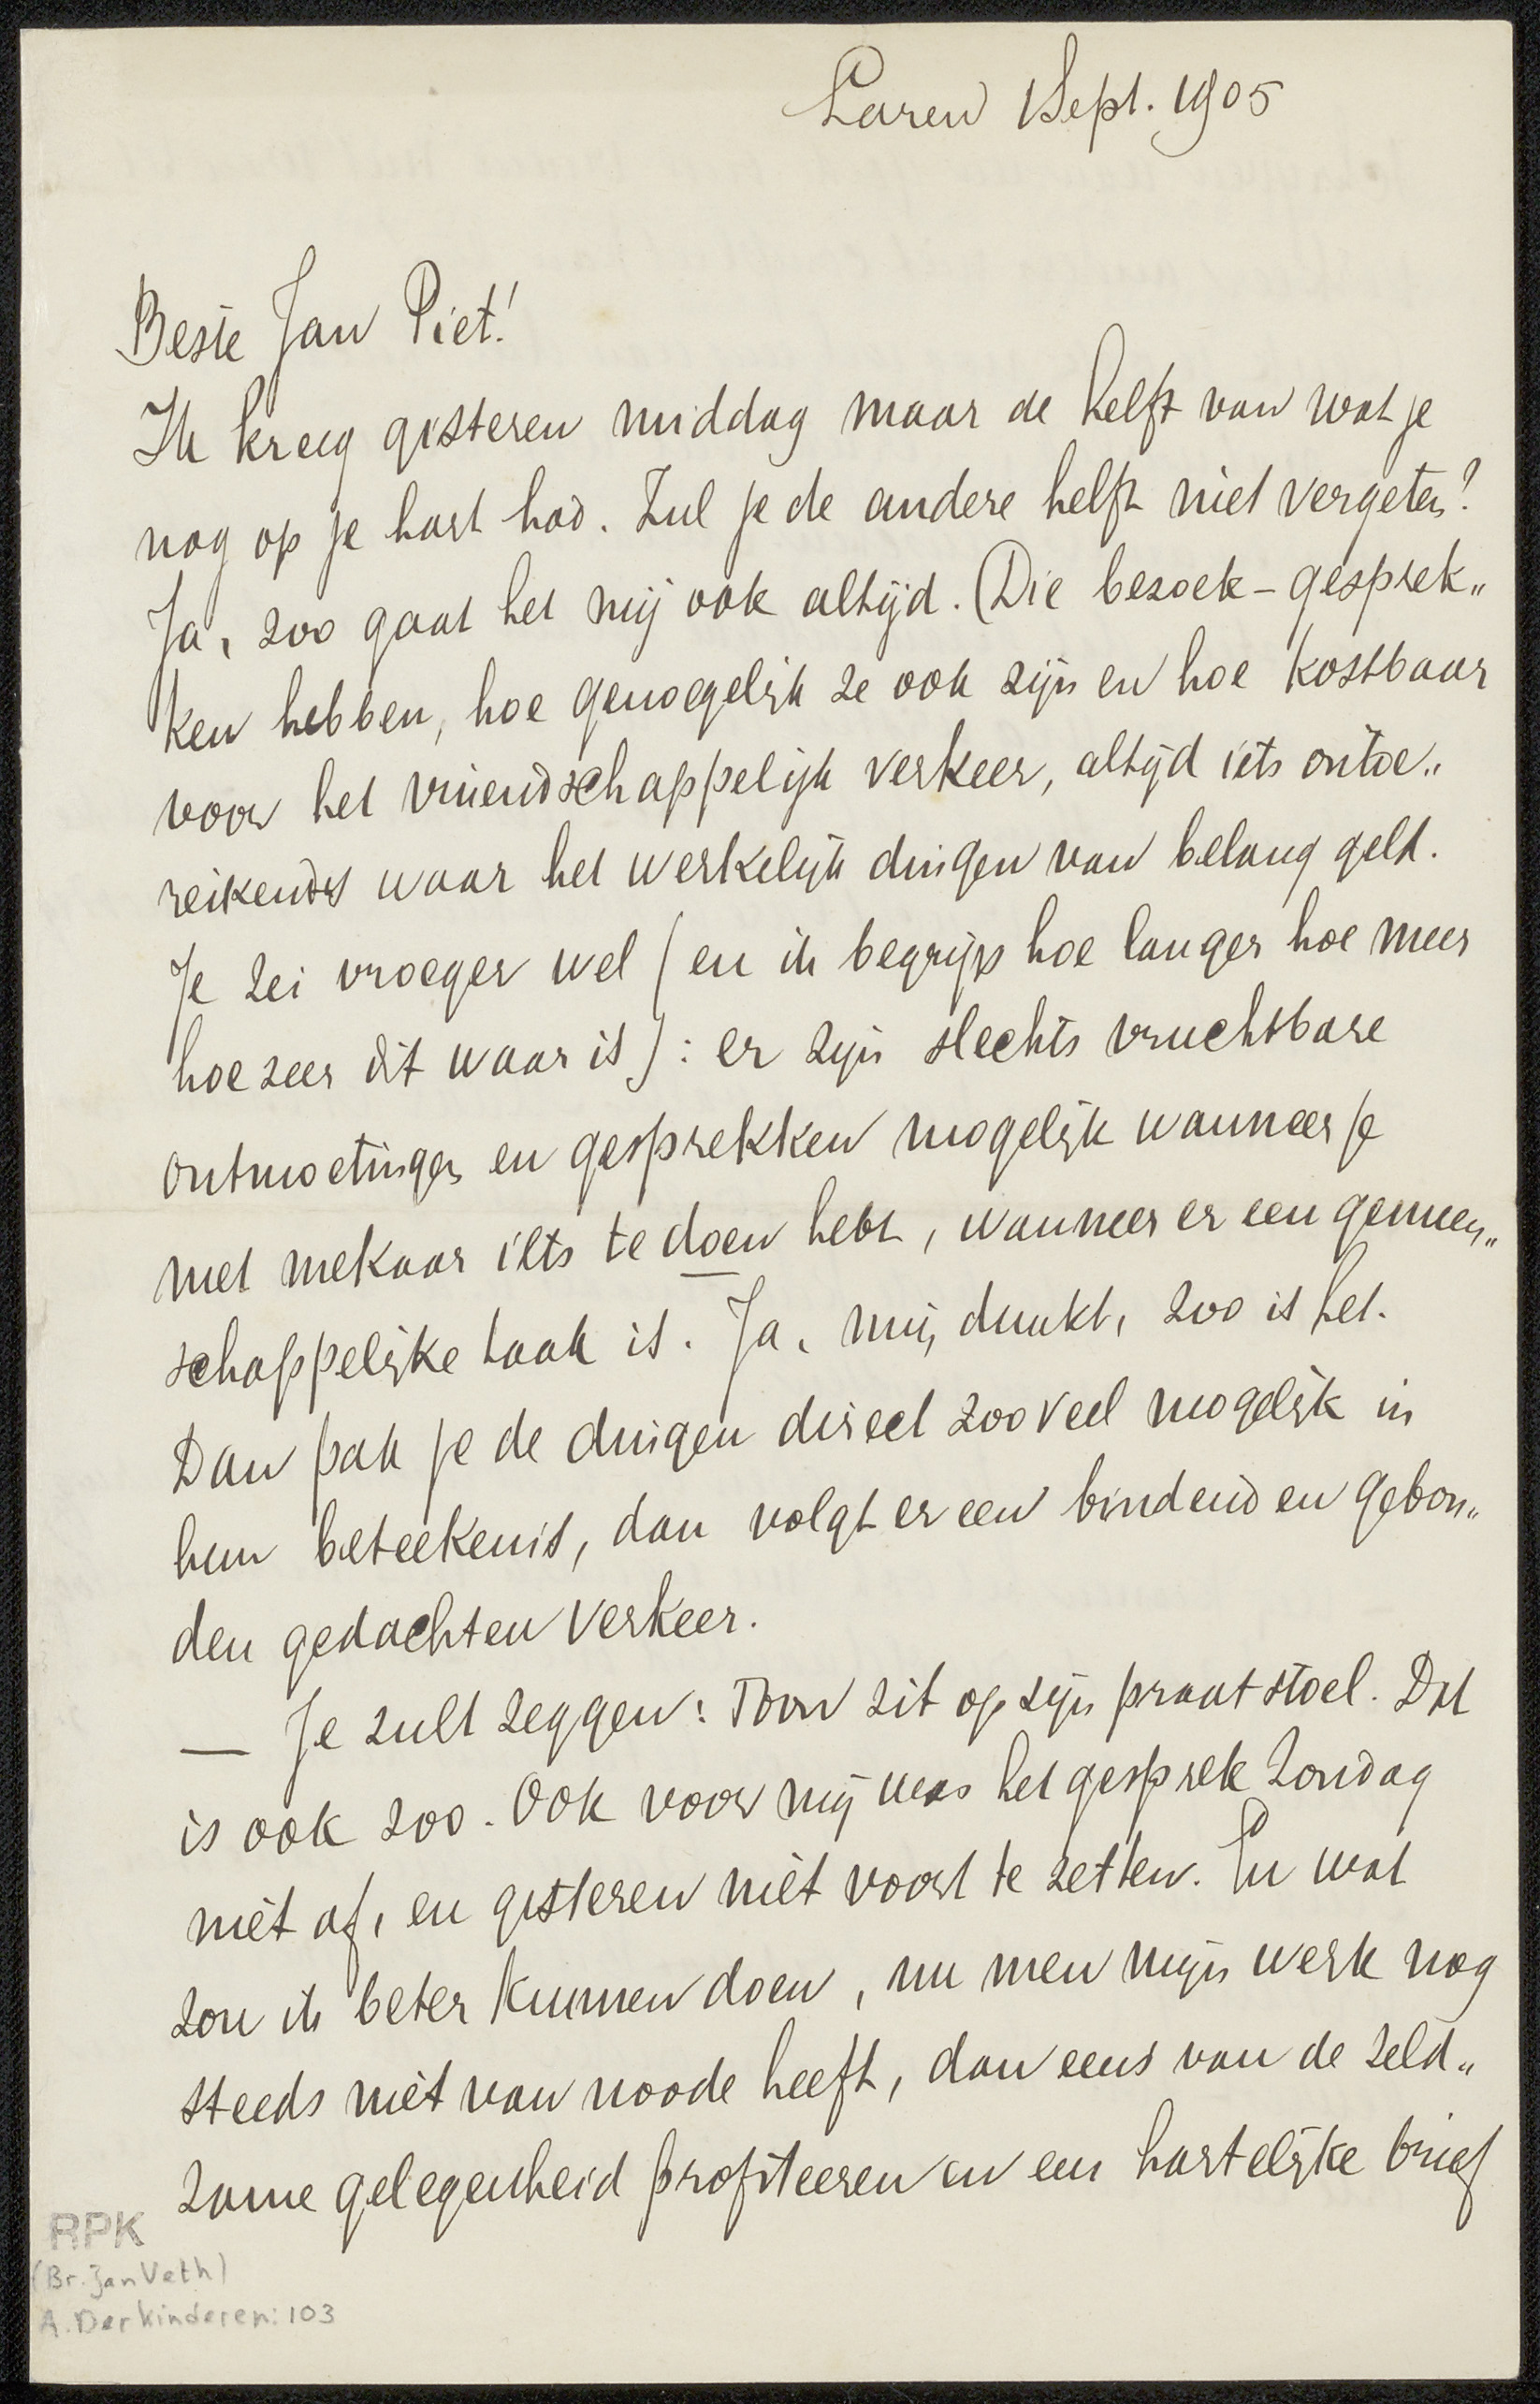 Laren 1 Sept. 1905
Beste Jan Piet!
Ik kreeg gisteren middag maar de helft van wat je
nog op je hart had. Zul je de andere helft niet vergeten?
Ja, zoo gaat het mij ook altijd. Die bezoek-gesprek„
ken hebben, hoe genoegelijk ze ook zijn en hoe kostbaar
voor het vriendschappelijk verkeer, altijd iets ontoe„
reikends waar het werkelijk dingen van belang geld.
Je zei vroeger wel (en ik begrijp hoe langer hoe meer
hoe zeer dit waar is): er zijn slechts vruchtbare
ontmoetingen en gesprekken mogelijk wanneer je
met mekaar iets te doen hebt, wanneer er een gemeen„
schappelijke taak is. Ja, mij dunkt, zoo is het.
Dan pak je de dingen direct zooveel mogelijk in
hun beteekenis, dan volgt er een bindend en gebon„
den gedachten verkeer.
— Je zult zeggen: Toon zit op zijn praatstoel. Dat
is ook zoo. Ook voor mij was het gesprek Zondag
niet af, en gisteren niet voort te zetten. En wat
zou ik beter kunnen doen, nu men mijn werk nog
steeds niet van noode heeft, dan eens van de zeld„
zame gelegenheid profiteeren en een hartelijke brief
RPK
(Br. Jan Veth)
A. Der Kinderen: 103